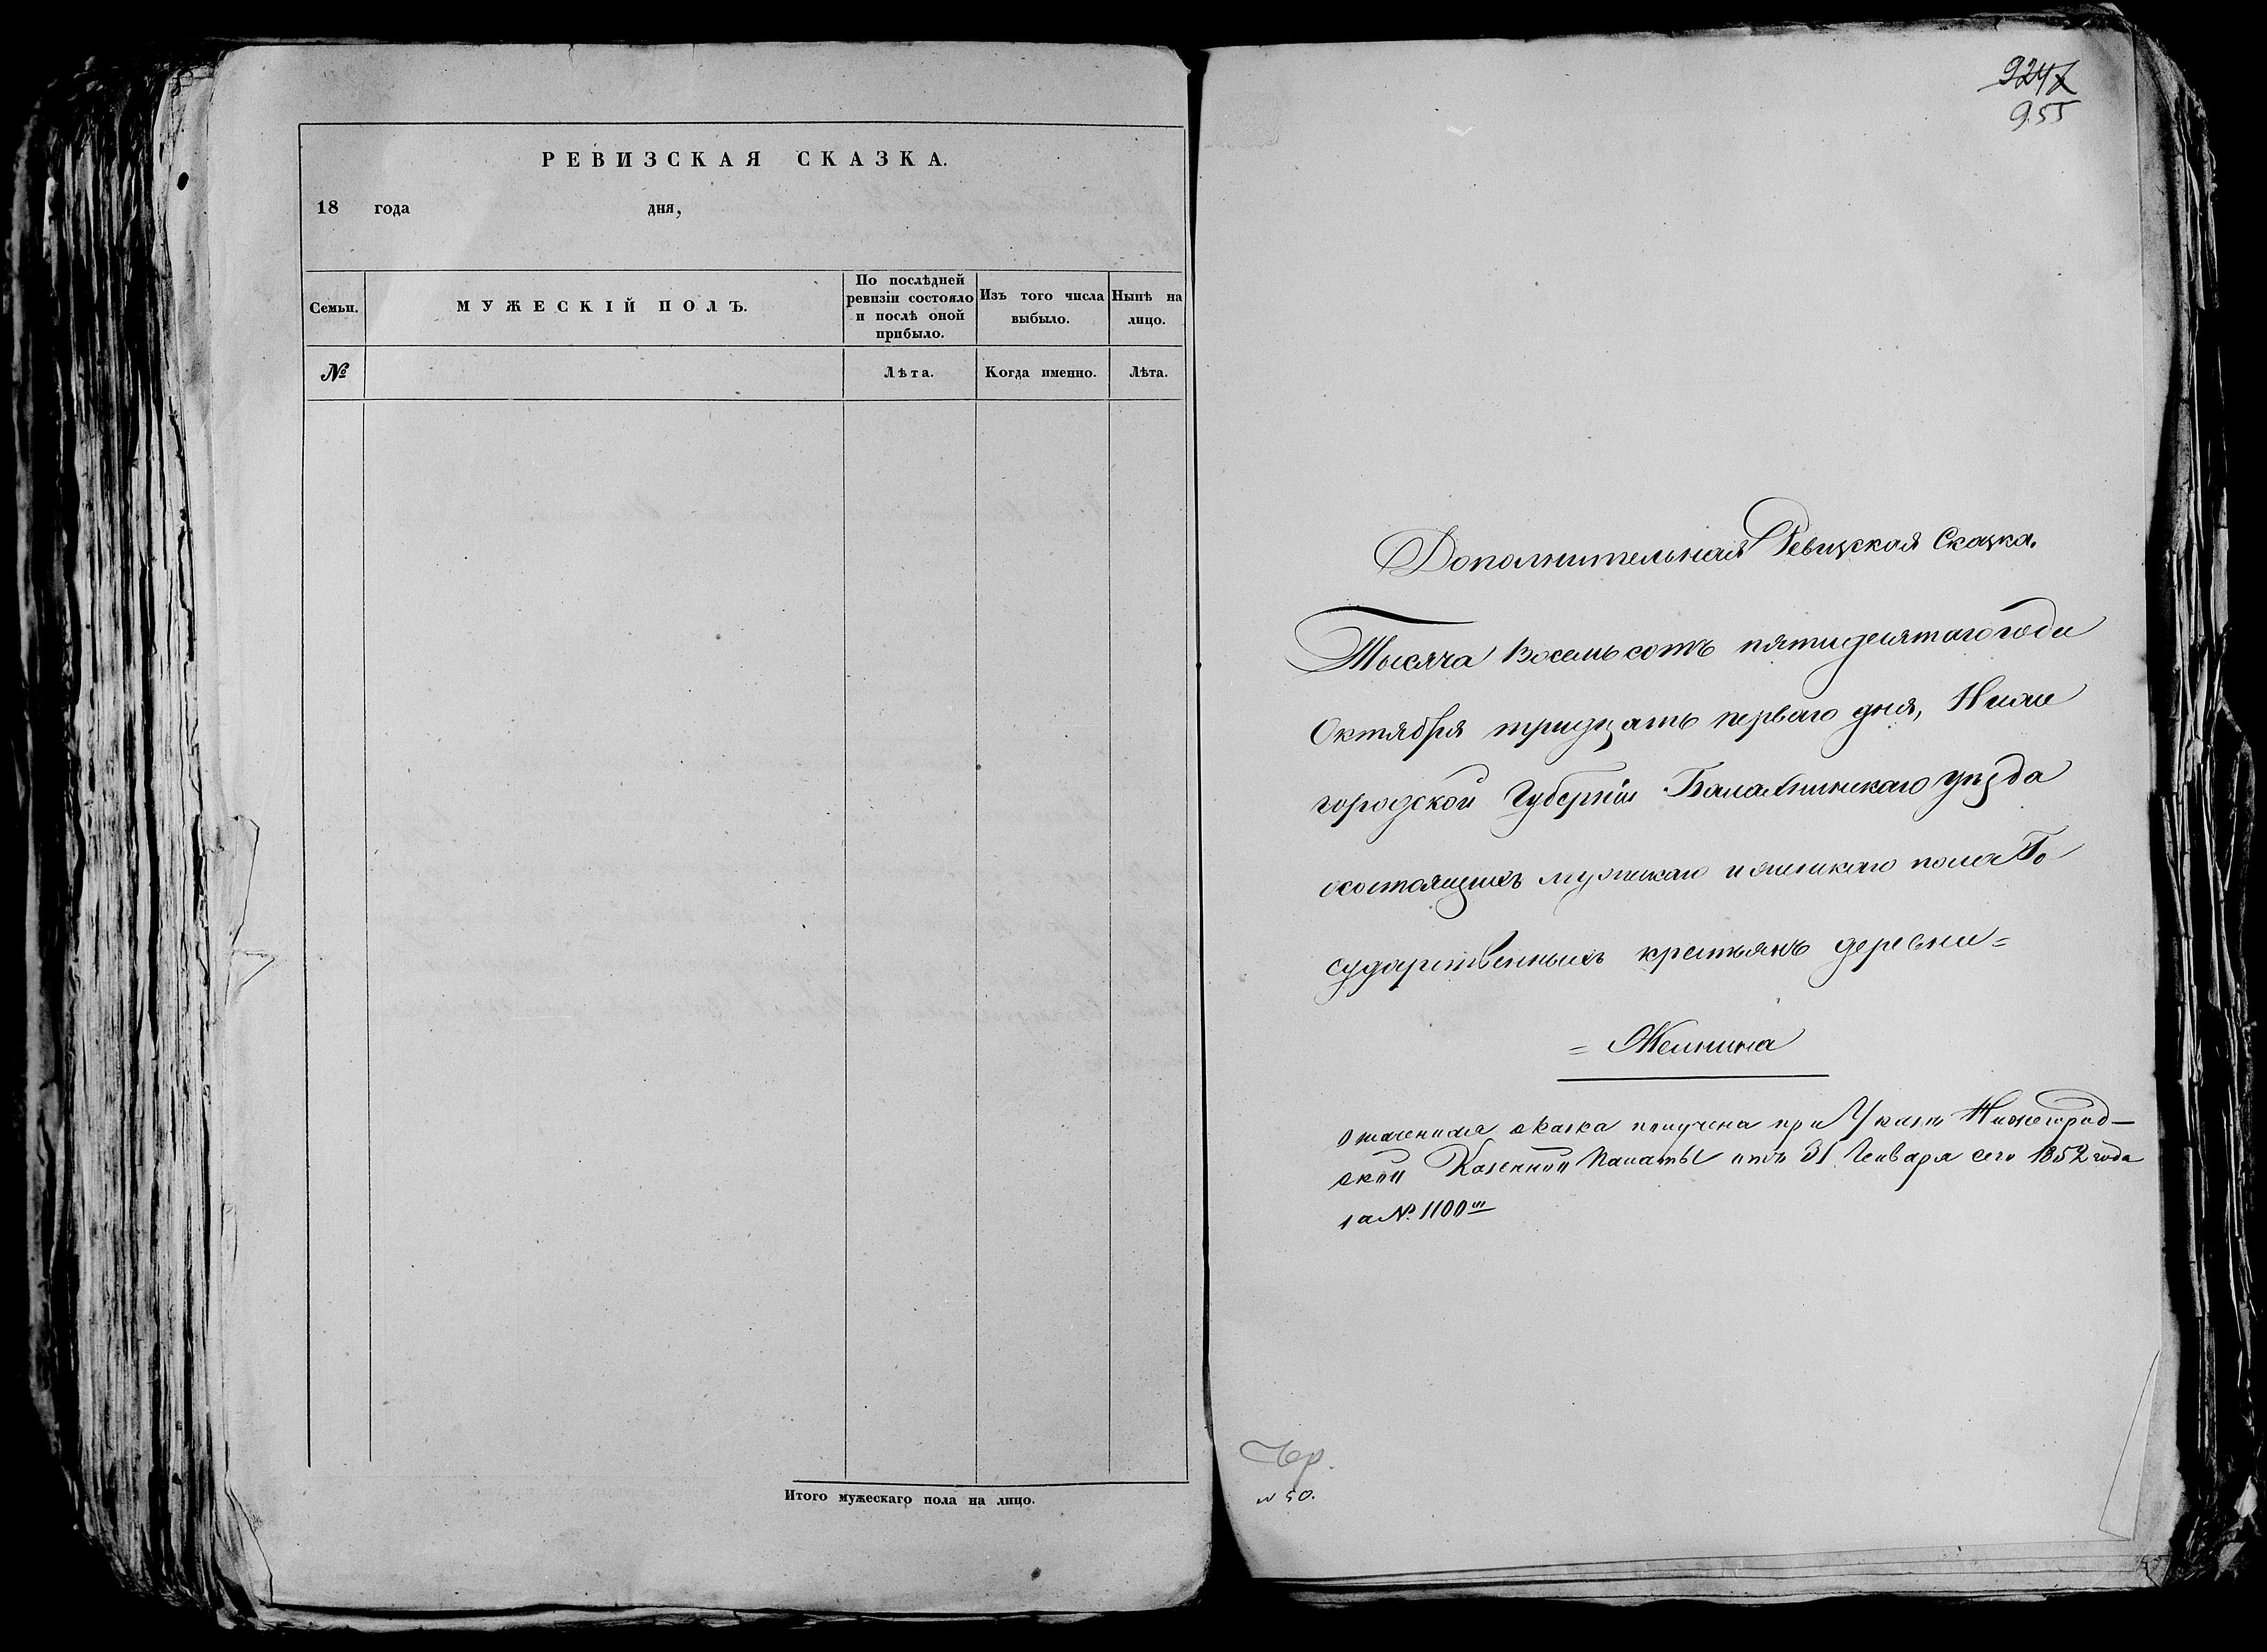 РЕВИЗСКАЯ СКАЗКА.
18 года дня,
Семьи.
МУЖЕСКІЙ ПОЛЪ.
По послѣдней
ревизіи состояло
и послѣ оной
прибыло.
Изъ того числа
выбыло.
Нынѣ на
лицо.
№
Лѣта.
Когда именно.
Лѣта.
Итого мужескаго пола на лицо.
924
955
Дополнительная Ревизская Сказка.
Тысяча восемьсотъ пятидесятаго года
Октября тридцать перваго дня, Ниже
городской Губерніи Балахнинскаго уѣзда
осостоящихъ мужескаго и женскаго пола Го
сударственныхъ крестьянъ деревни=
= Женнина
означенная сказка получена при Указѣ Нижегород-
ской Казенной Палаты отъ 31 Генваря сего 1852 года
за №. 1100
№ 50.